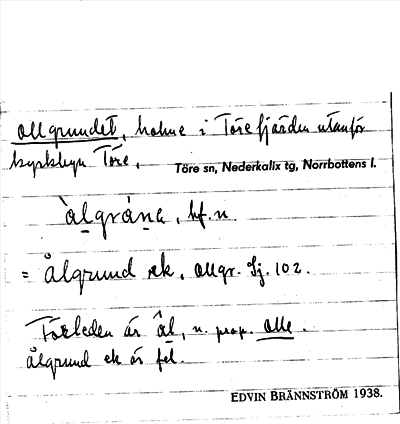 Ollgrundet, holme i Törefjärden utanför
kyrkbyn Töre.
Töre sn, Nederkalix tg, Norrbottens l.
`àlgrána, bf. n.
= Ålgrund ek, Ollgr. Sj. 102.
Förleden är âl, n. prop. Olle.
Ålgrund ek är fel.
EDVIN BRÄNNSTRÖM 1938.